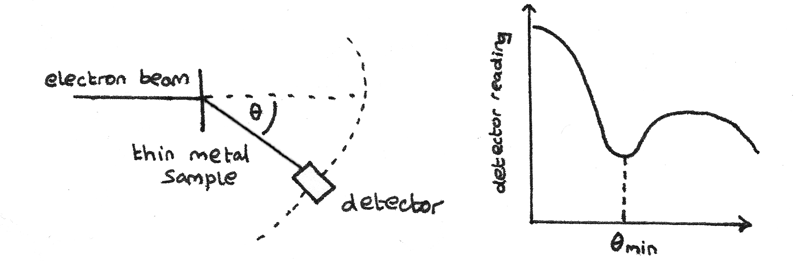 electron beam
θ
thin metal
sample
detector
detector reading
θmin